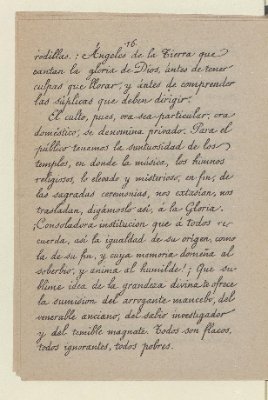 16.
rodillas. ¡Ángeles de la Tierra que
cantan la gloria de Dios, ántes de tener
culpas que llorar, y ántes de comprender
las súplicas que deben dirigir!
El culto, pues, ora sea particular, ora
doméstico, se denomina privado. Para el
público tenemos la suntuosidad de los
templos, en donde la música, los himnos
religiosos, lo elevado y misterioso, en fin, de
las sagradas ceremonias, nos extasian, nos
trasladan, digámoslo así, á la Gloria.
¡Consoladora institucion que á todos re-
cuerda, así la igualdad de su origen, como
la de su fin, y cuya memoria domeña al
soberbio, y anima al humilde! ¡Que su-
blime idea de la grandeza divina te ofrece
la sumision del arrogante mancebo, del
venerable anciano, del sabio investigador
y del temible magnate. Todos son flacos,
todos ignorantes, todos pobres.